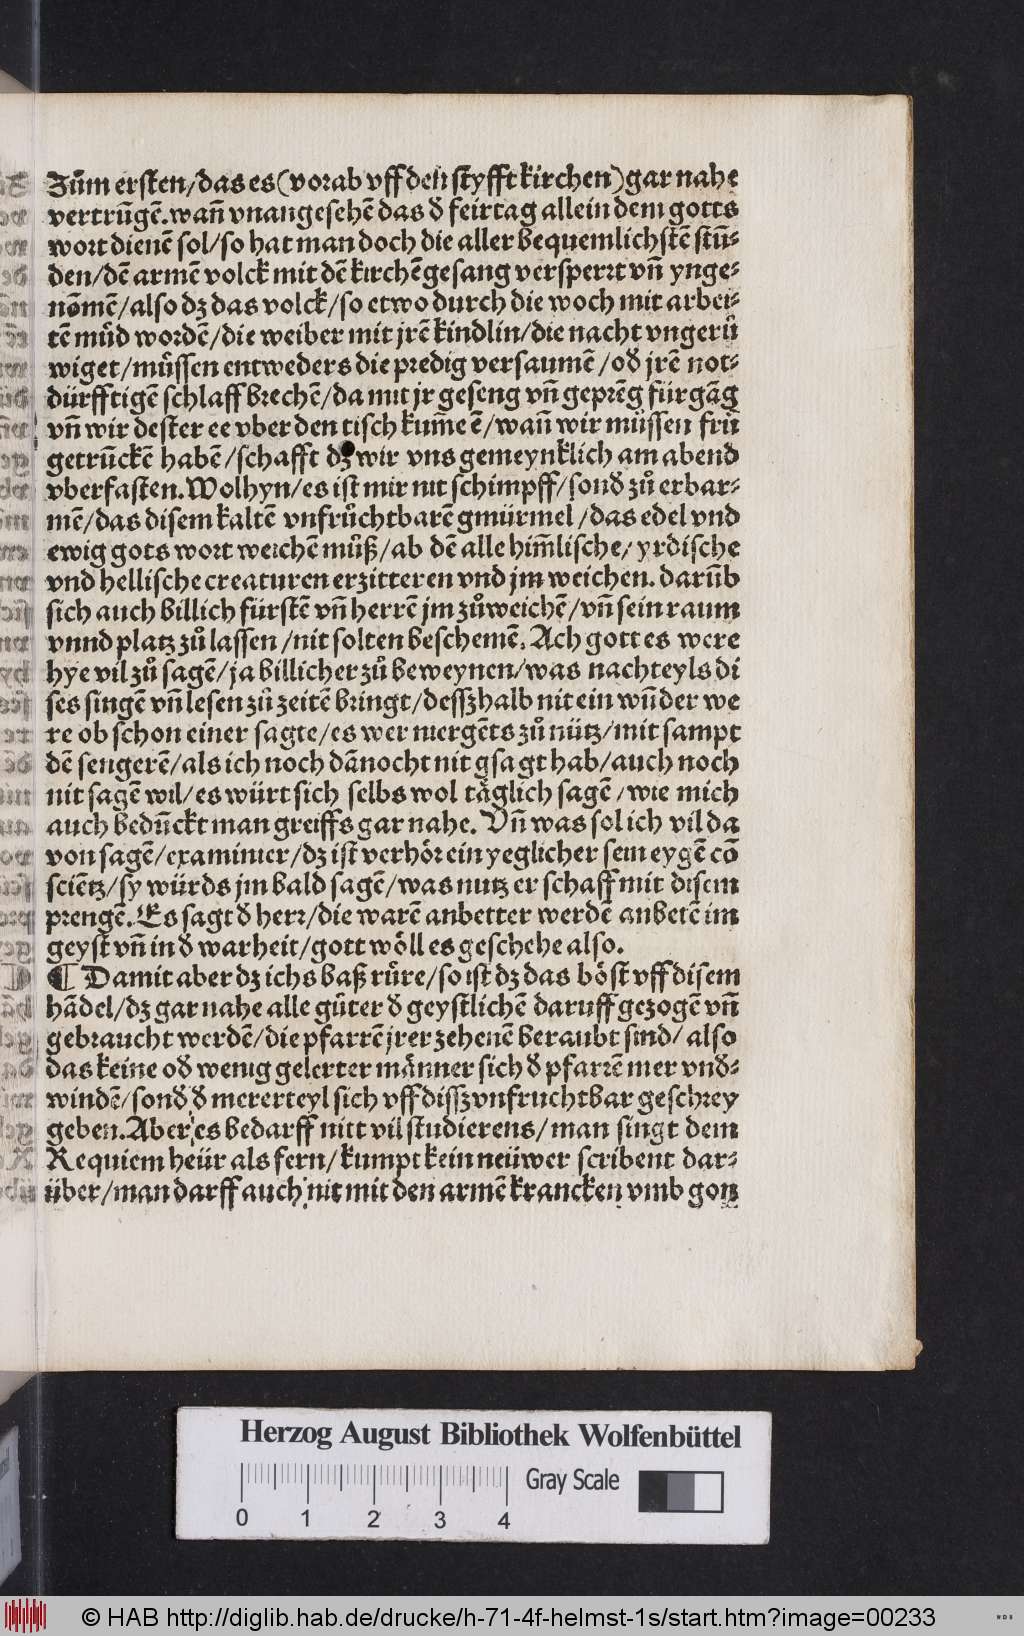 Zům ersten/das es (vorab vff den styfft kirchen) gar nahe
vertrũgẽ.wañ vnangesehẽ das ð feirtag allein dem gotts
wort dienẽ sol/so hat man doch die aller bequemlichstẽ stũ⸗
den/dẽ armẽ volck mit dẽ kirchẽgesang versperrt vñ ynge⸗
nõmẽ/also dz das volck/so etwo durch die woch mit arbei⸗
tẽ můd wordẽ/die weiber mit jrẽ kindlin/die nacht vngerů
wiget/můssen entweders die predig versaumẽ/oð jrẽ not⸗
dürfftigẽ schlaff brechẽ/da mit jr geseng vñ geprẽg fürgãg
vñ wir dester ee vber den tisch kum̃e ẽ/wañ wir müssen frü
getrũckẽ habẽ/schafft dz wir vns gemeynklich am abend
vberfasten.Wolhyn/es ist mir nit schimpff/sonð zů erbar⸗
mẽ/das disem kaltẽ vnfrůchtbarẽ gmürmel/das edel vnd
ewig gots wort weichẽ můß/ab dẽ alle him̃lische/yrdische
vnd hellische creaturen erzitteren vnd jm weichen.darũb
sich auch billich fürstẽ vñ herrẽ jm zůweichẽ/vñ sein raum
vnnd platz zů lassen/nit solten beschemẽ.Ach gott es were
hye vil zů sagẽ/ja billicher zů beweynen/was nachteyls di
ses singẽ vñ lesen zů zeitẽ bringt/dessz halb nit ein wũder we
re ob schon einer sagte/es wer niergẽts zů nütz/mit sampt
dẽ sengerẽ/als ich noch dãnocht nit gsagt hab/auch noch
nit sagẽ wil/es würt sich selbs wol täglich sagẽ/wie mich
auch bedũckt man greiffs gar nahe.Vñ was sol ich vil da
von sagẽ/examinier/dz ist verhör ein yeglicher sein eygẽ cõ
sciẽtz/sy würds jm bald sagẽ/was nutz er schaff mit disem
prengẽ.Es sagt ð herr/die warẽ anbetter werdẽ anbetẽ im
geyst vñ in ð warheit/gott wöll es geschehe also.
¶ Damit aber dz ichs baß rüre/so ist dz das böst vff disem
hãdel/dz gar nahe alle gůter ð geystlichẽ daruff gezogẽ vñ
gebraucht werdẽ/die pfarrẽ jrer zehenẽ beraubt sind/also
das keine oð wenig gelerter männer sich ð pfarrẽ mer vnð⸗
windẽ/sonð ð mererteyl sich vff dissz vnfruchtbar geschrey
geben.Aber es bedarff nitt vil studierens/man singt dem
Requiem heür als fern/kumpt kein neüwer scribent dar⸗
über/man darff auch nit mit den armẽ krancken vmb gon
Herzog August Bibliothek Wolfenbüttel
Gray Scale
0 1 2 3 4
© HAB http://diglib.hab.de/drucke/h-71-4f-helmst-1s/start.htm?image=00233
WDB